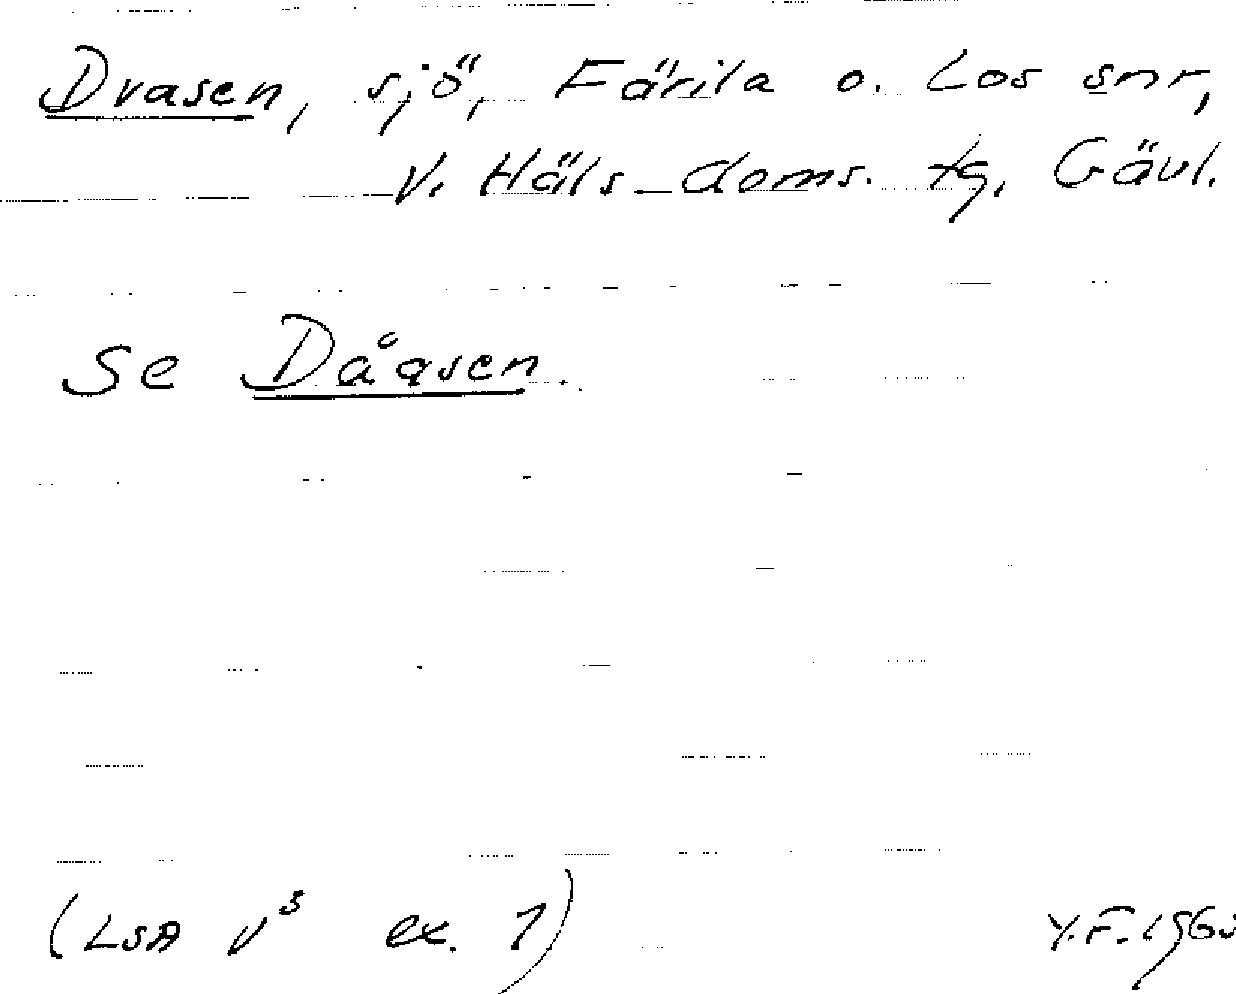 Drasen, sjö, Färila o. Los snr,
V. Häls. doms. tg, Gävl.
Se Dåasen.
(LSA V³ ex. 1)
Y.F.